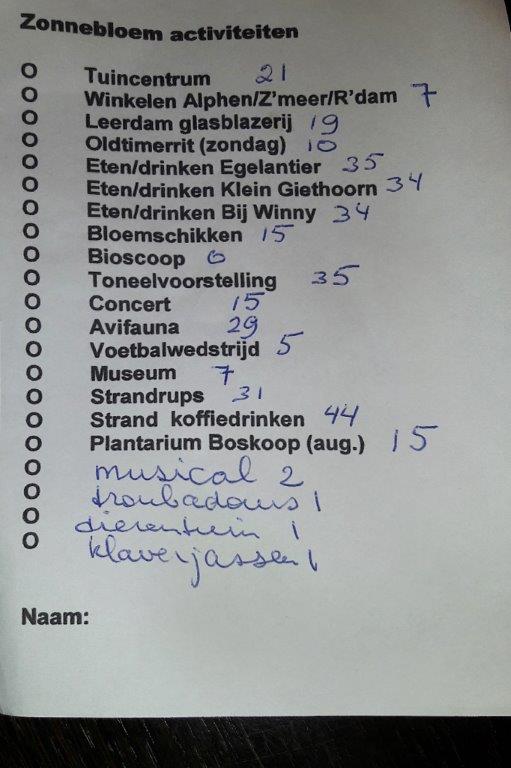 Zonnebloem activiteiten
O Tuincentrum 21
O Winkelen Alphen/Z'meer/R'dam 7
O Leerdam glasblazerij 19
O Oldtimerrit (zondag) 10
O Eten/drinken Egelantier 35
O Eten/drinken Klein Giethoorn 34
O Eten/drinken Bij Winny 34
O Bloemschikken 15
O Bioscoop 6
O Toneelvoorstelling 35
O Concert 15
O Avifauna 29
O Voetbalwedstrijd 5
O Museum 7
O Strandrups 31
O Strand koffiedrinken 44
O Plantarium Boskoop (aug.) 15
O musical 2
O troubadours 1
O dierentuin 1
O klaverjassen 1
Naam: